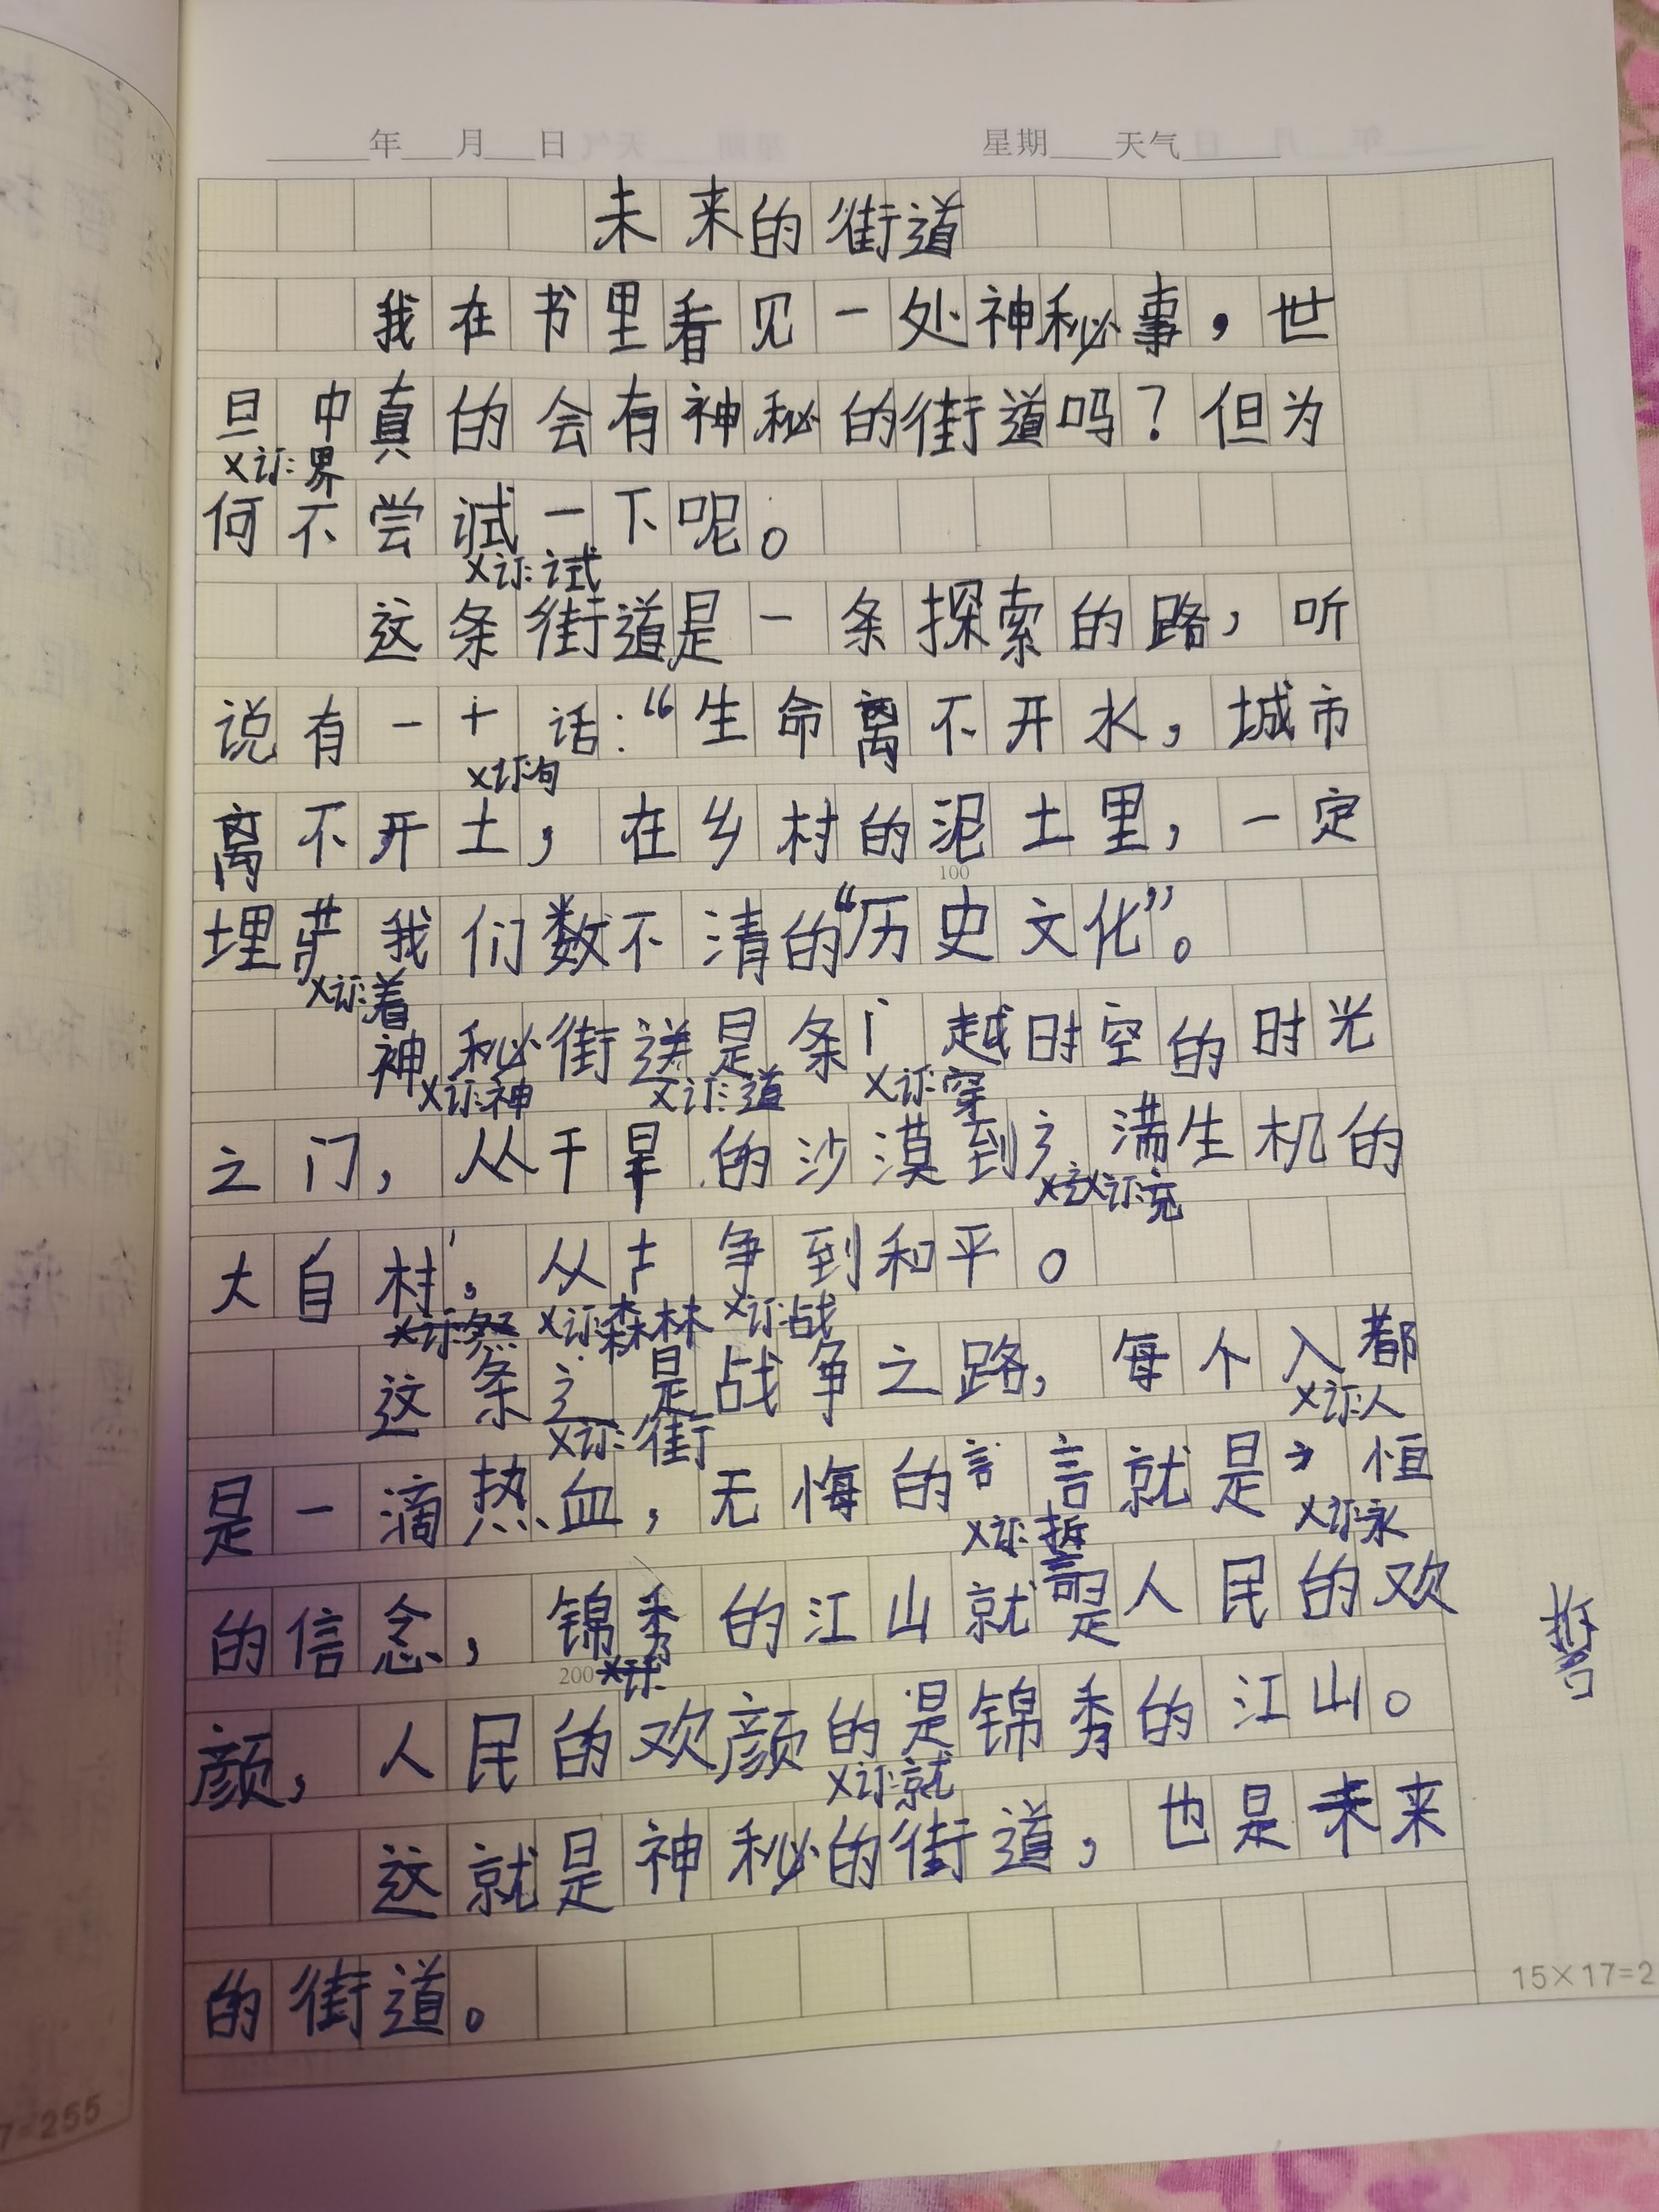 年 月 日 星期 天气
未来的街道
我在书里看见一处神秘事，世
旦中真的会有神秘的街道吗？但为
X订：界
何不尝试一下呢。
X订：试
这条街道是一条探索的路，听
说有一十话：“生命离不开水，城市
X订：句
离不开土，在乡村的泥土里，一定
100
埋我们数不清的“历史文化”。
X订：着
神秘街道是条越时空的时光
X订：神 X订：道 X订：穿
之门，从干旱的沙漠到满生机的
X订：充
大自村，从争到和平。
X订：森林 X订：战
这条是战争之路，每个入都
X订：街 X订：人
是一滴热血，无悔的言就是恒
X订：誓 X订：永
的信念，锦秀的江山就是人民的欢
誓
200
颜，人民的欢颜的是锦秀的江山。
X订：就
这就是神秘的街道，也是未来
的街道。
15×17=2
7=255